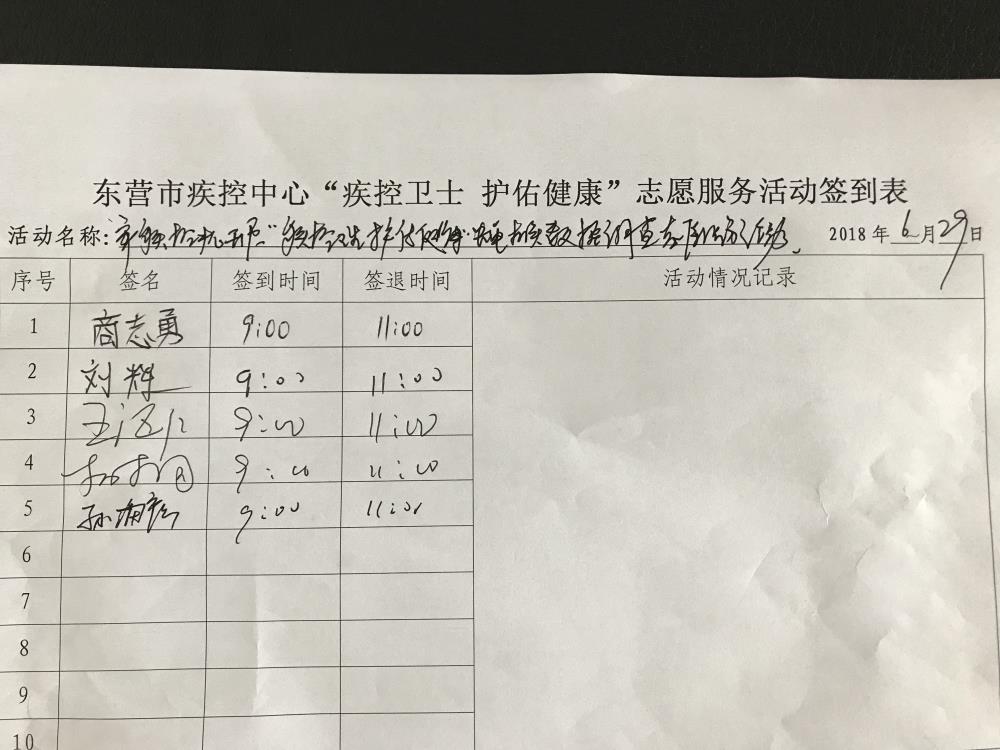 东营市疾控中心“疾控卫士 护佑健康”志愿服务活动签到表
活动名称: 2018年6月29日
序号 签名 签到时间 签退时间 活动情况记录
1 商志勇 9:00 11:00
2 刘辉 9:00 11:00
3 9:00 11:00
4 9:00 11:00
5 孙 9:00 11:00
6
7
8
9
10